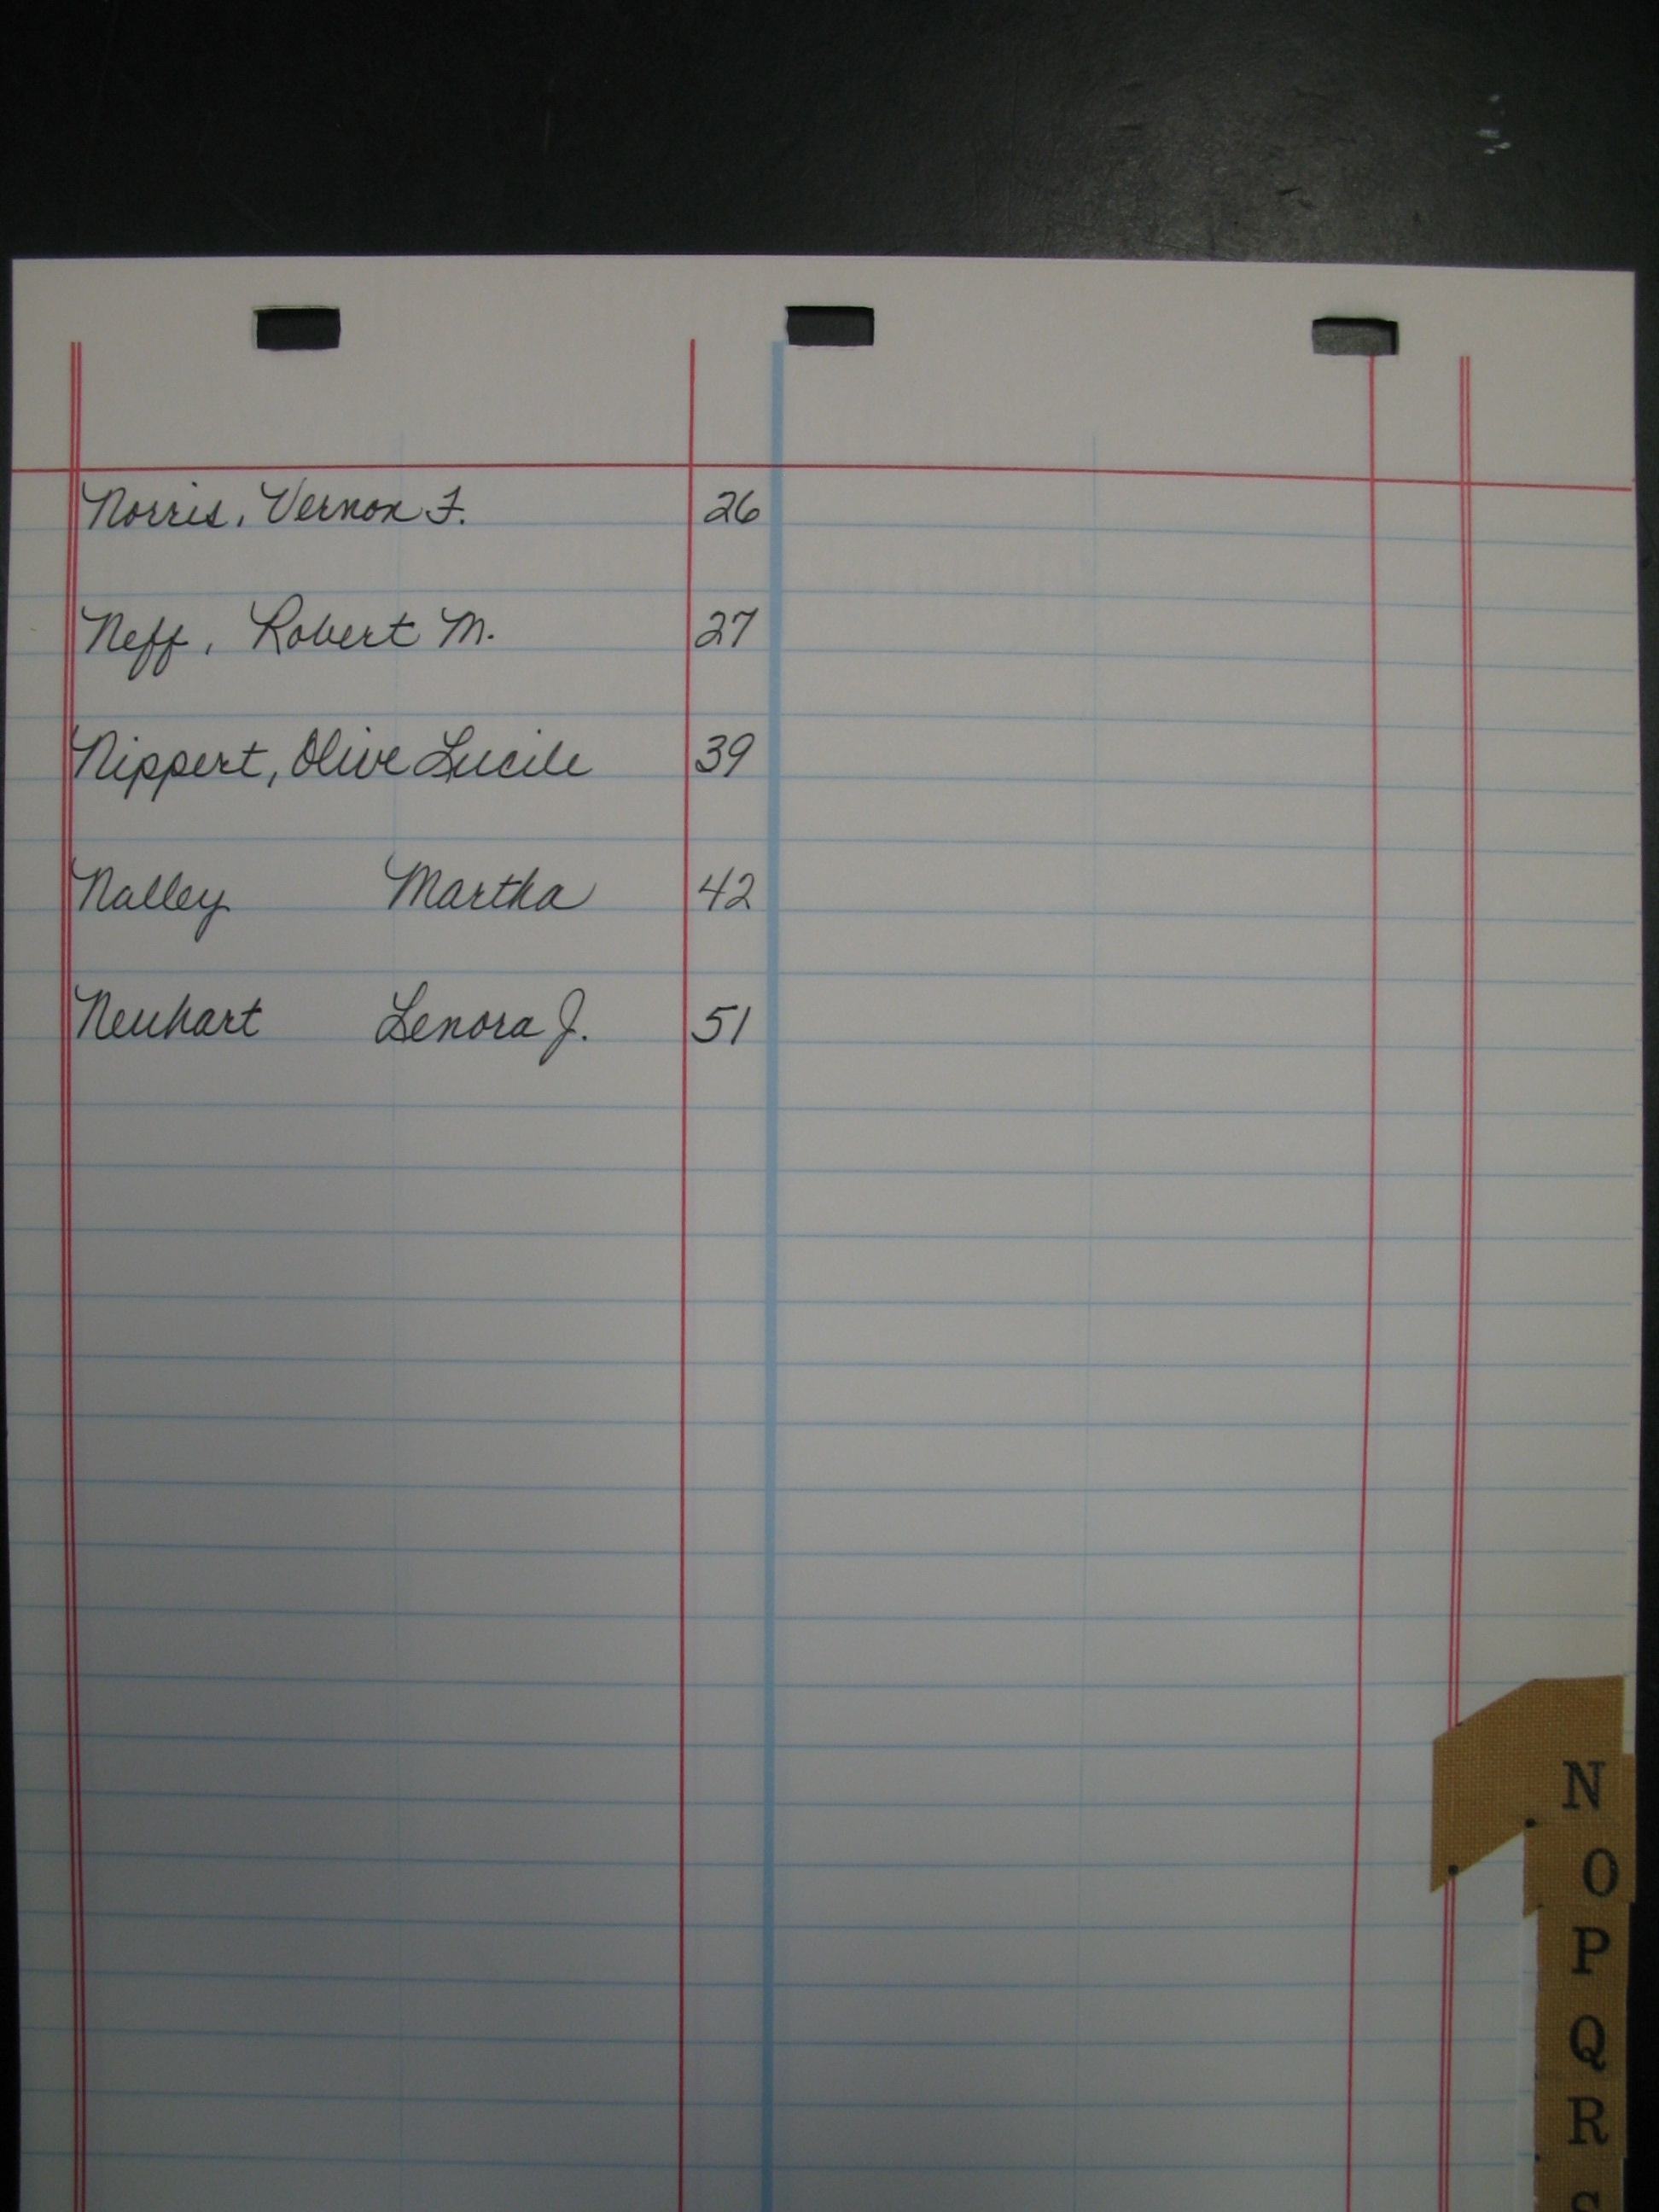 Norris, Vernon F. 26
Neff, Robert M. 27
Nippert, Olive Lucile 39
Nalley Martha 42
Neuhart Lenora J. 51
N
O
P
Q
R
S